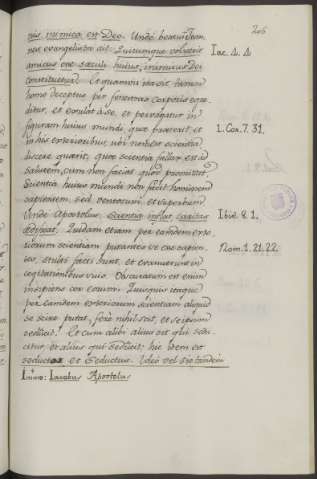 206
nis, inimica est Deo. Unde beatus Joan-
nes evangelista ait: Quicumque voluerit Iac. 4. 4
amicus esse saeculi huius, inimicus Dei
constituetur. Et quamvis ita sit tamen
homo deceptus per fenestras corporis egre-
ditur, et exulat a se, et pervagatur in
figuram huius mundi, quae praeterit, et 1. Cor. 7. 31.
in his exterioribus, ubi non est scientia
discere quaerit, quae scientia faciat est ad
salutem, cum non faciat quod promittit.
Scientia huius mundi non facit hominem
sapientem, sed ventosum, et superbum.
Unde Apostolus, scientia inflat, caritas Ibid. 8. 1.
aedificat. Quidam etiam per eandem exte-
riorum scientiam putantes se esse sapien- Rom. 1. 21. 22.
tes, stulti facti sunt, et evanuerunt in
cogitationibus suis. Obscuratum est enim
insipiens cor eorum. Quisquis itaque
per eandem exteriorum scientiam aliquid
se scire putat, ipse nihil scit, et seipsum
seducit. Et cum alibi alius sit qui sedu-
citur, et alius qui seducit; hic idem est
seductor et seductus. Ideo vel sic tandem
Immo: Iacobus Apostolus